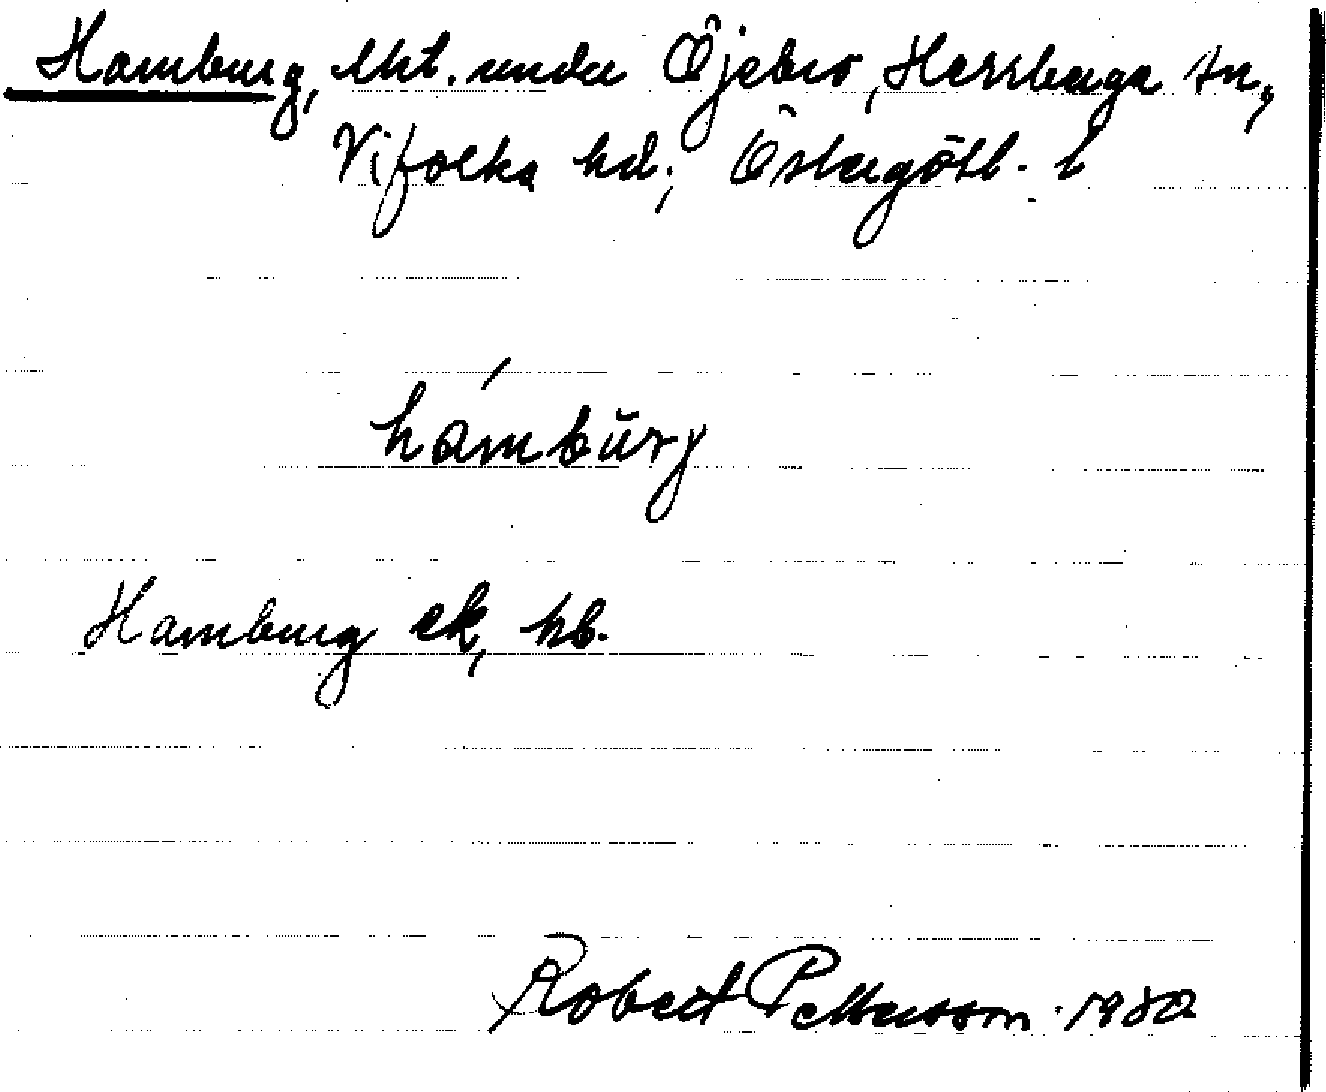 Hamburg, lht. under Öjebro, Herrberga sn,
Vifolka hd, Östergötl. l
hámbŭrj
Hamburg ek, hb.
Robert Pettersson